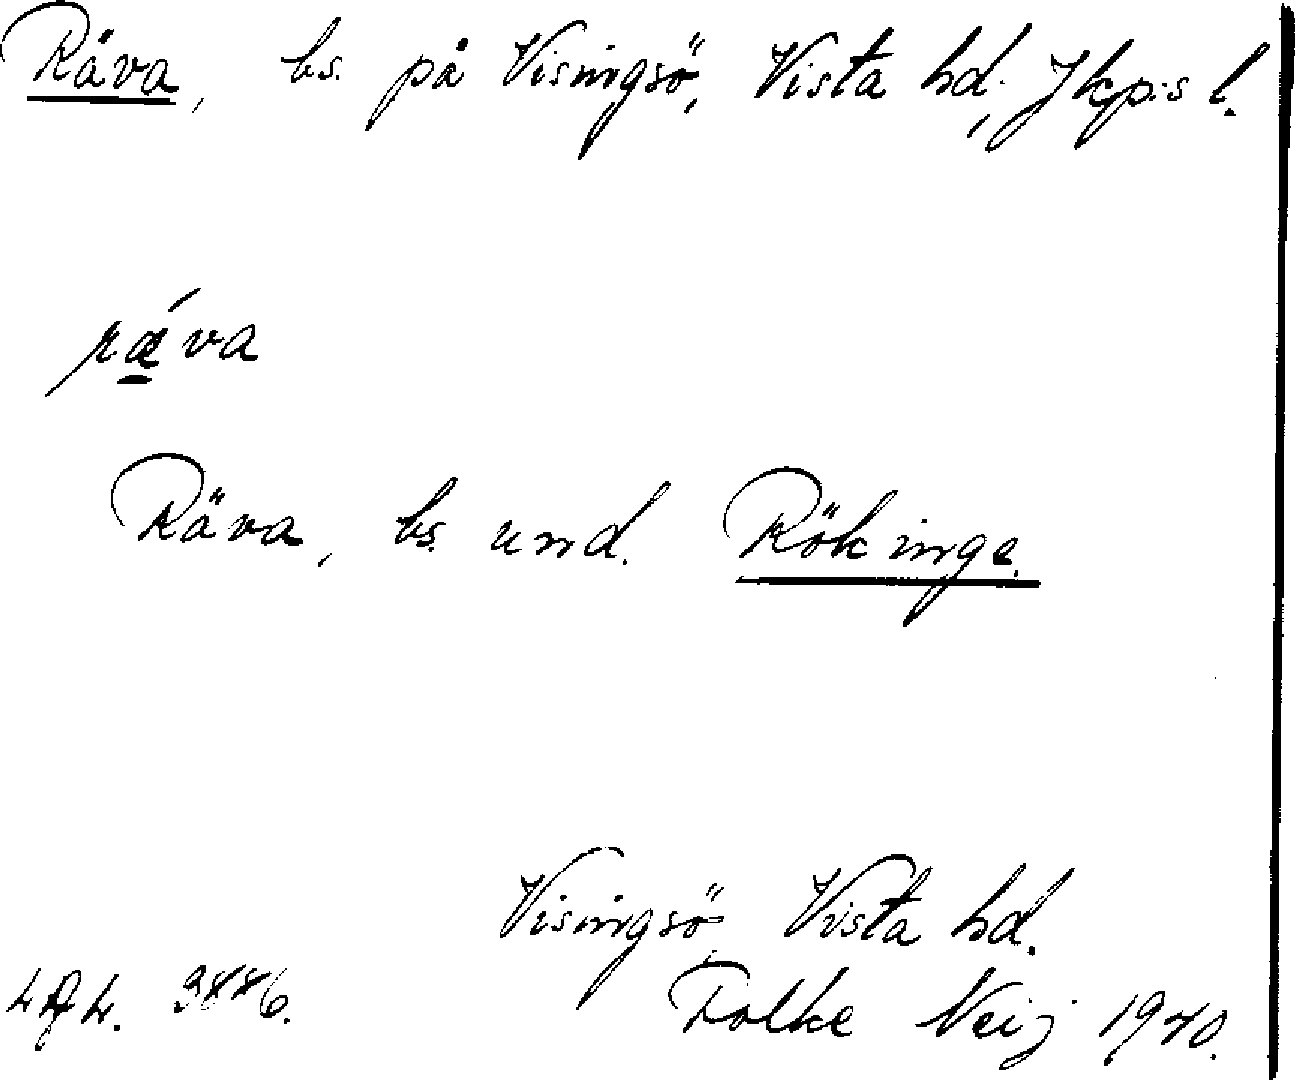 Räva, bs. på Visingsö, Vista hd, Jkp:s l.
rǽva
Räva, bs. und. Rökinge.
Visingsö, Vista hd.
Folke Neij 1940.